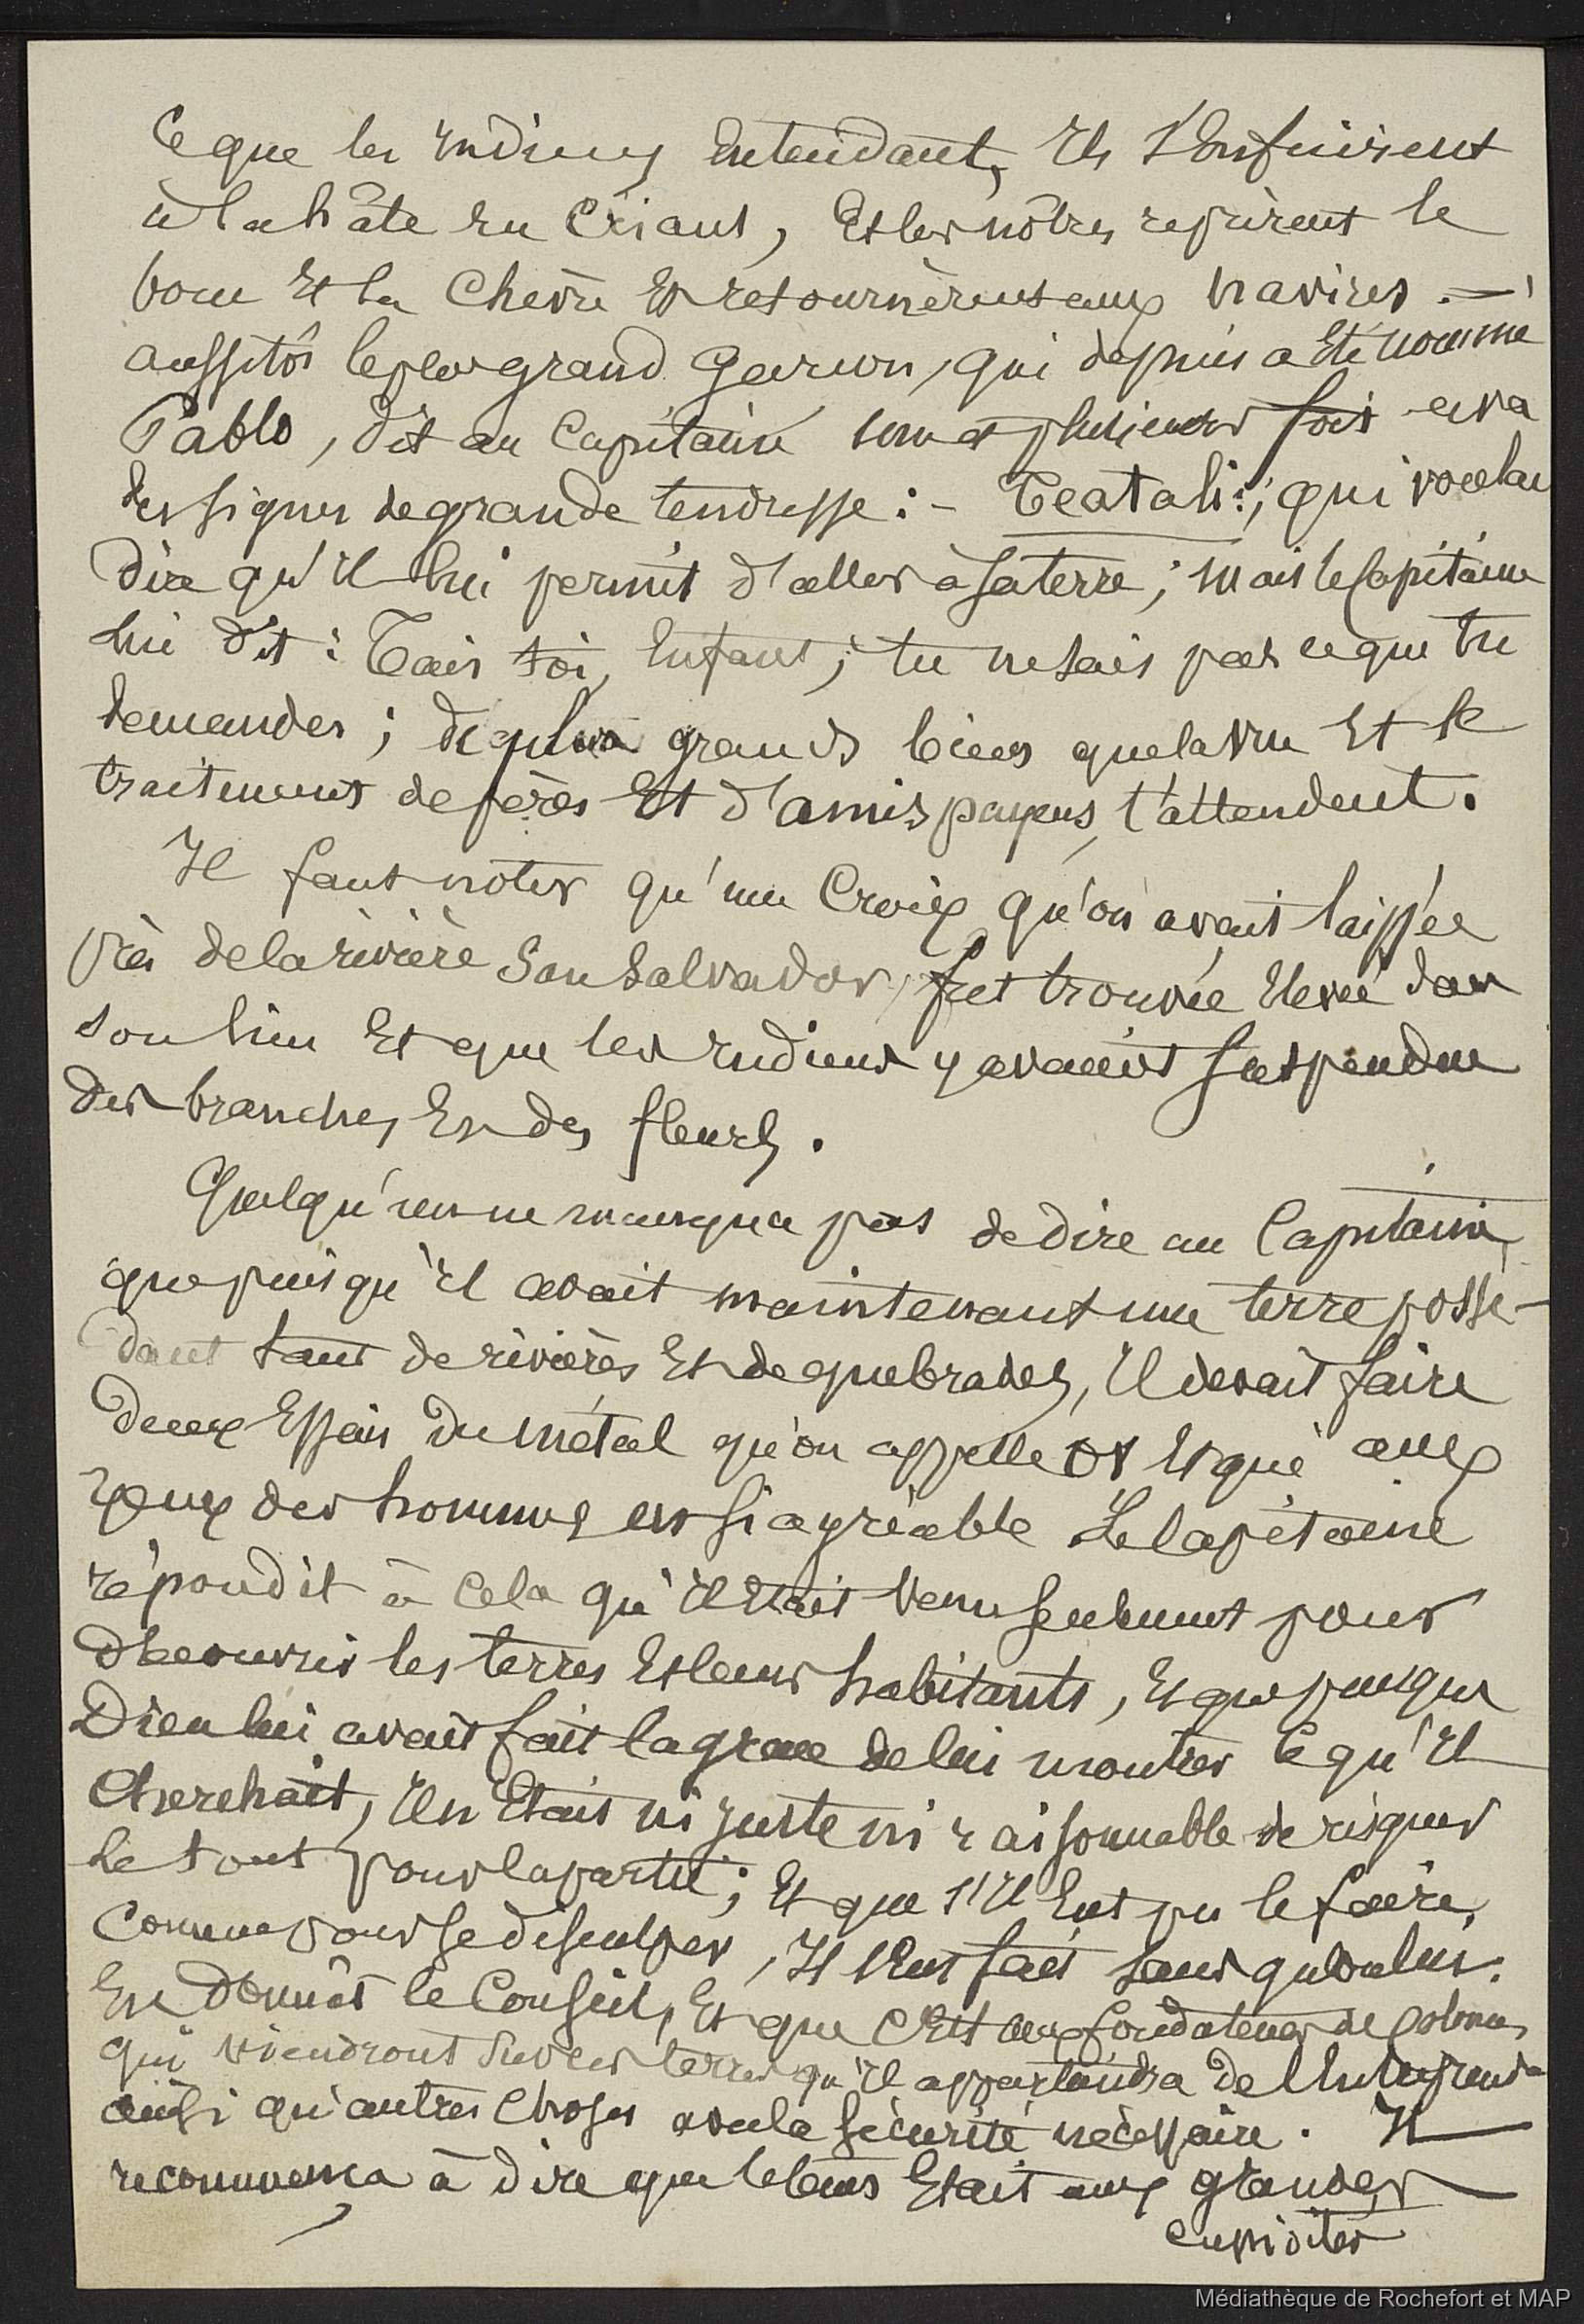 Ce que les Indiens entendant, Ils s'enfuirent
à la hâte en criant, Et les nôtres reprirent le
bouc Et la chèvre Et retournèrent aux navires. —
aussitôt le plus grand garçon, qui depuis a Eté nommé
Pablo, dit au Capitaine plusieurs fois avec
des signes de grande tendresse : - Teatali :, qui voulait
dire qu'il lui permit d'aller à sa terre ; mais le Capitaine
lui dit : Tais toi, Enfant ; tu ne sais pas ce que tu
demandes ; de plus grands biens que la vue Et le
traitement de pères Et d'amis payens, t'attendent.
Il faut noter qu'une Croix qu'on avait laissée
près de la rivière San Salvador, fut trouvée Elevée dans
son lieu Et que les Indiens y avaient suspendu
des branches Et des fleurs.
Quelqu'un ne manqua pas de dire au Capitaine
que puisqu'il avait maintenant une terre possé-
dant tant de rivières Et de quebrades, Il devait faire
deux Essais du métal qu'on appelle or Et qui aux
yeux des hommes est si agréable Le Capitaine
répondit à cela qu'Il Etait venu seulement pour
découvrir les terres Et leurs habitants, Et que puisque
Dieu lui avait fait la grace de lui montrer ce qu'Il
cherchait, Il n'Etait ni juste ni raisonnable de risquer
le tout pour la partie ; Et que s'Il Eut pu le faire,
comme pour se disculper, Il l'Eut fait sans qu'on lui
En donnât le Conseil, Et que c'Est aux fondateurs de colonies
qui viendront sur ces terres qu'il appartiendra de l'Entreprendre
ainsi qu'autres choses avec la sécurité nécessaire. Il
recommença à dire que le temps Etait aux grandes
curiosités
Médiathèque de Rochefort et MAP